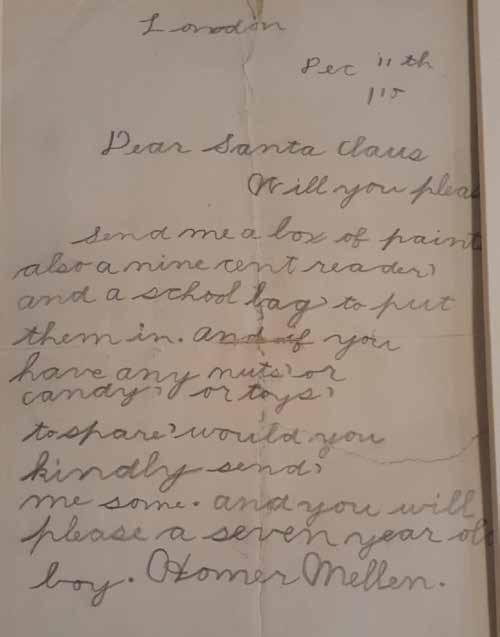 London
Dec 11th
1915
Dear Santa Claus
Will you pleas
send me a box of paint
also a nine cent reader,
and a school bag, to put
them in. and if you
have any nuts, or
candy, or toys,
to spare, would you
kindly send,
me some. and you will
please a seven year old
boy. Homer Mellen.